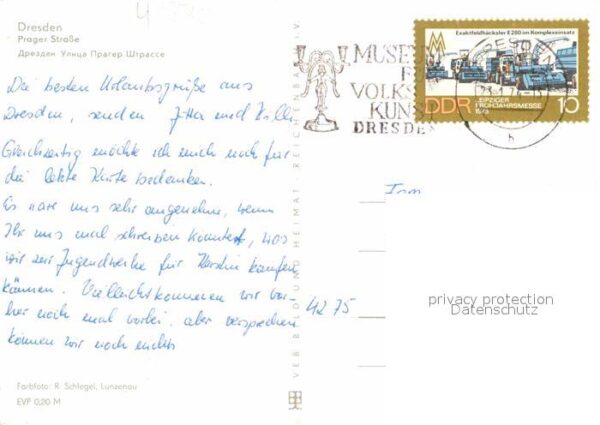 Dresden
Prager Straße
Дрезден Улица Прагер Штрассе
Die besten Urlaubsgrüße aus
Dresden, senden Jutta und Willi
Gleichzeitig möchte ich mich noch für
die letzte Karte bedanken.
Es wäre uns sehr angenehm, wenn
Ihr uns mal schreiben könntet, was
wir zur Jugendweihe für Kerstin kaufen
können. Vielleicht kommen wir vor-
her noch mal vorbei, aber versprechen
können wir noch nichts
Farbfoto: R. Schlegel, Lunzenau
EVP 0,20 M
VEB BILD UND HEIMAT REICHENBACH I. V.
MUSEUM
F
VOLKS
KUNS
DRESDEN
DRESDEN
h
Exaktfeldhäcksler E 280 im Komplexeinsatz
DDR
LEIPZIGER
FRÜHJAHRSMESSE
1973
10
42 75
privacy protection
Datenschutz